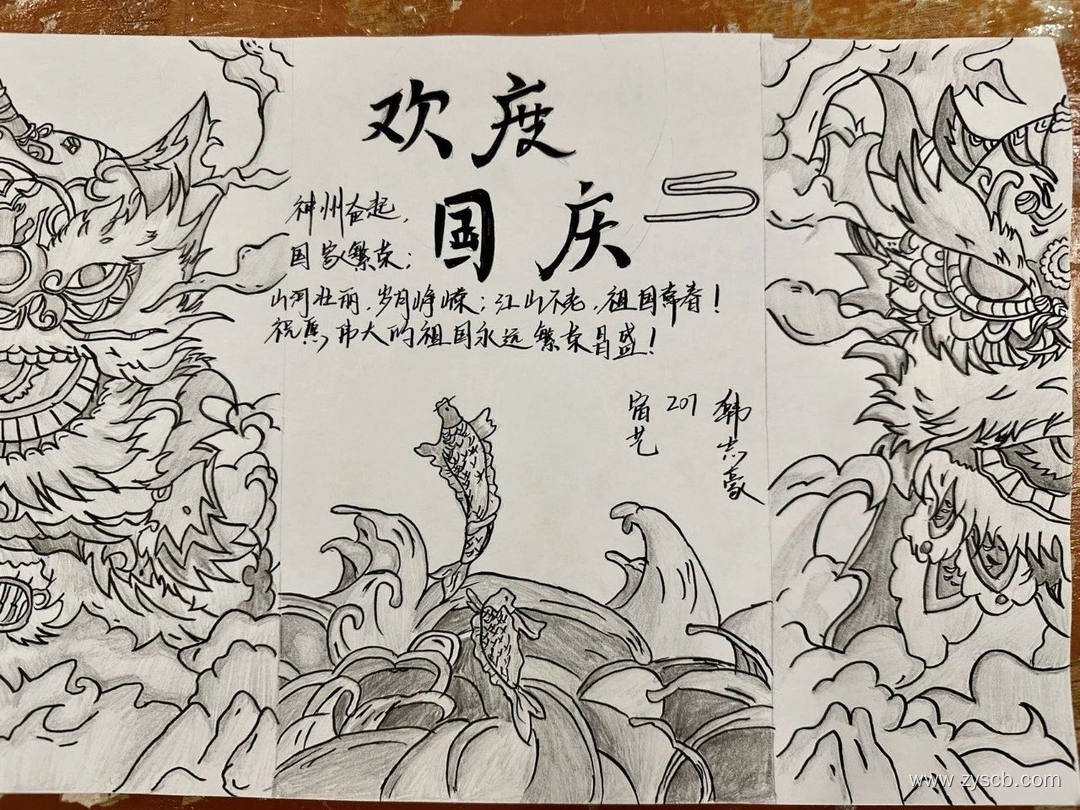 欢度
国庆
神州奋起，
国家繁荣；
山河壮丽，岁月峥嵘；江山不老，祖国常春！
祝愿伟大的祖国永远繁荣昌盛！
宿艺 201 韩志豪
www.zyscb.com